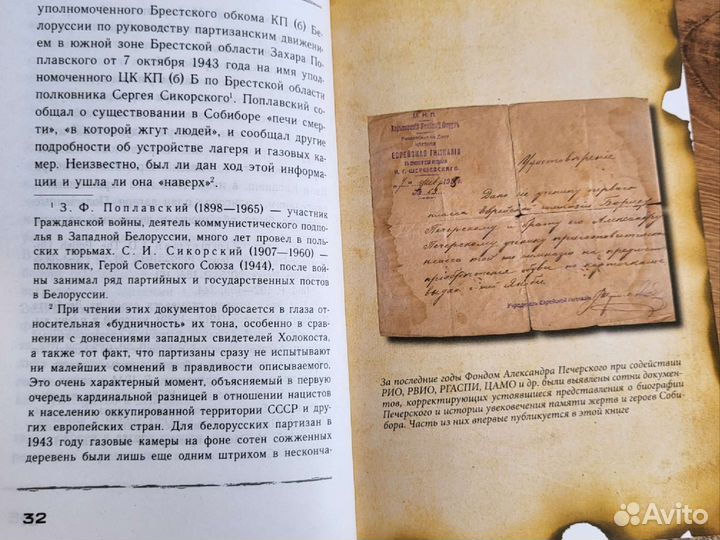 уполномоченного Брестского обкома КП (б) Бе-
лоруссии по руководству партизанским движени-
ем в южной зоне Брестской области Захара По-
плавского от 7 октября 1943 года на имя упол-
номоченного ЦК КП (б) Б по Брестской области
полковника Сергея Сикорского¹. Поплавский со-
общал о существовании в Собиборе «печи смер-
ти», «в которой жгут людей», и сообщил другие
подробности об устройстве лагеря и газовых ка-
мер. Неизвестно, был ли дан ход этой информа-
ции и ушла ли она «наверх»².
¹ З. Ф. Поплавский (1898—1965) — участник
Гражданской войны, деятель коммунистического подпо-
лья в Западной Белоруссии, много лет провел в поль-
ских тюрьмах. С. И. Сикорский (1907—1960) —
полковник, Герой Советского Союза (1944), после вой-
ны занимал ряд партийных и государственных постов
в Белоруссии.
² При чтении этих документов бросается в глаза от-
носительная «будничность» их тона, особенно в срав-
нении с донесениями западных свидетелей Холокоста,
а также тот факт, что партизаны сразу не испытывают
ни малейших сомнений в правдивости описываемого.
Это очень характерный момент, объясняемый в первую
очередь кардинальной разницей в отношении нацистов
к населению оккупированной территории СССР и дру-
гих европейских стран. Для белорусских партизан в
1943 году газовые камеры на фоне сотен сожженных
деревень были лишь еще одним штрихом в нескон­ча-
32
ЕВРЕЙСКАЯ ГИМНАЗІЯ
Удостовѣреніе
Дано сіе ученику перваго
класса Еврейской гимназіи Борису
Печерскому и брату его Александру
Печерскому, ученику приготовительнаго
класса
Учредитель Еврейской гимназіи
За последние годы Фондом Александра Печерского при содействии
РИО, РВИО, РГАСПИ, ЦАМО и др. были выявлены сотни докумен-
тов, корректирующих устоявшиеся представления о биографии
Печерского и истории увековечения памяти жертв и героев Соби-
бора. Часть из них впервые публикуется в этой книге
Avito